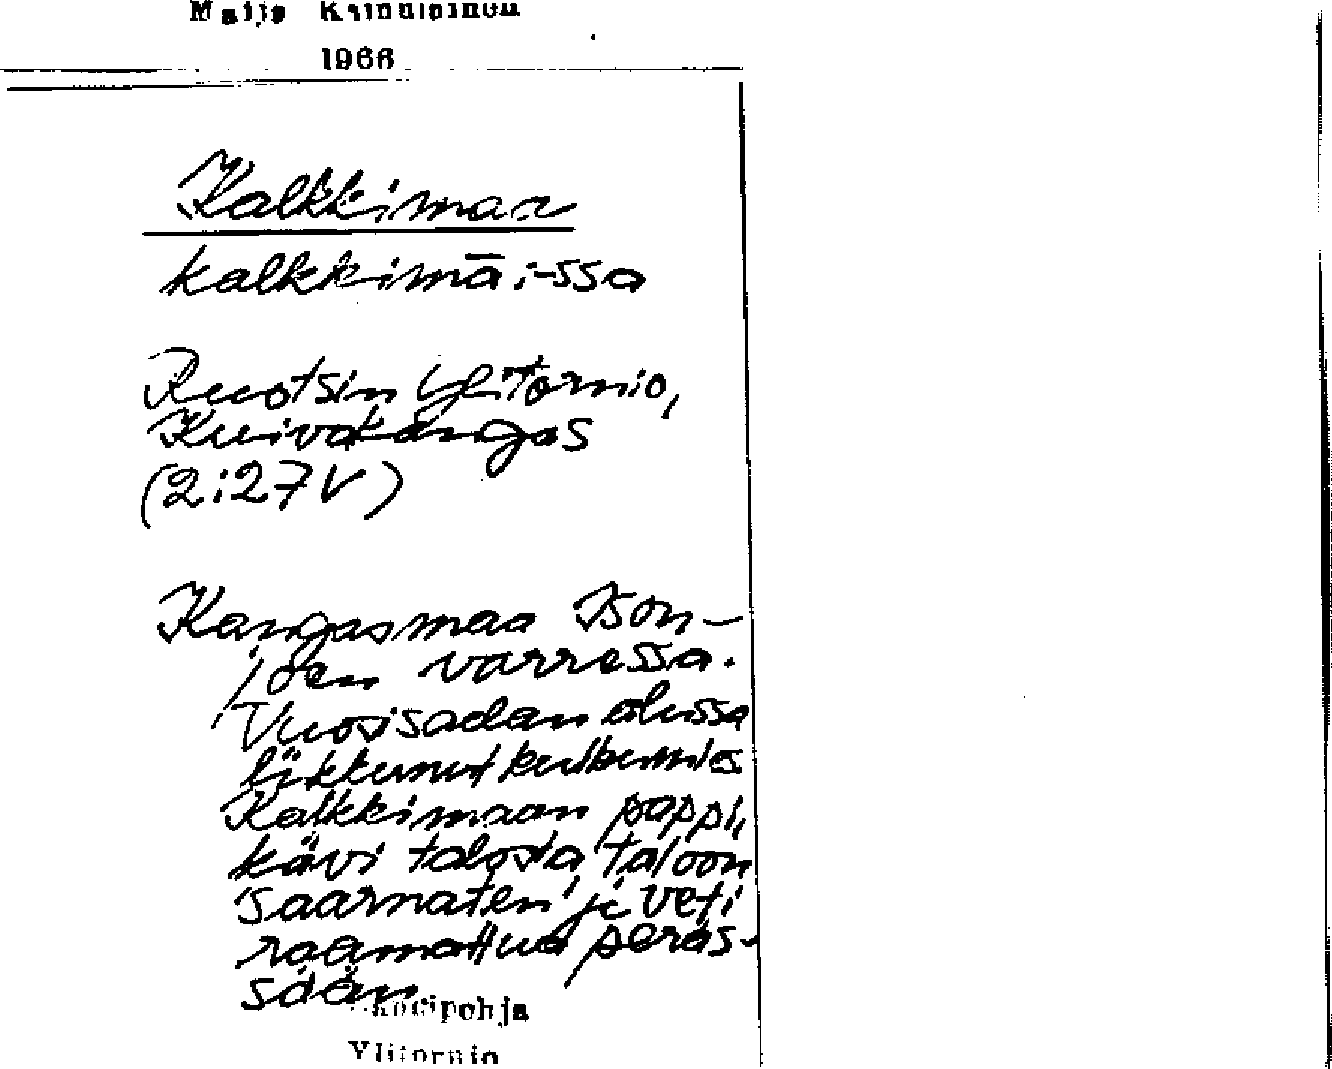 Maija Kainulainen
1966
Kalkkimaa
kalkkimā:-ssa
Ruotsin Ylitornio,
Kuivakangas
(2:27 V)
Kangasmaa Ison-
joen varressa.
Vuosisadan alussa
liikkunut kulkumies
Kalkkimaan pappi,
kävi talosta taloon
saarnaten ja veti
raamattua peräs-
sään
Ylitornio